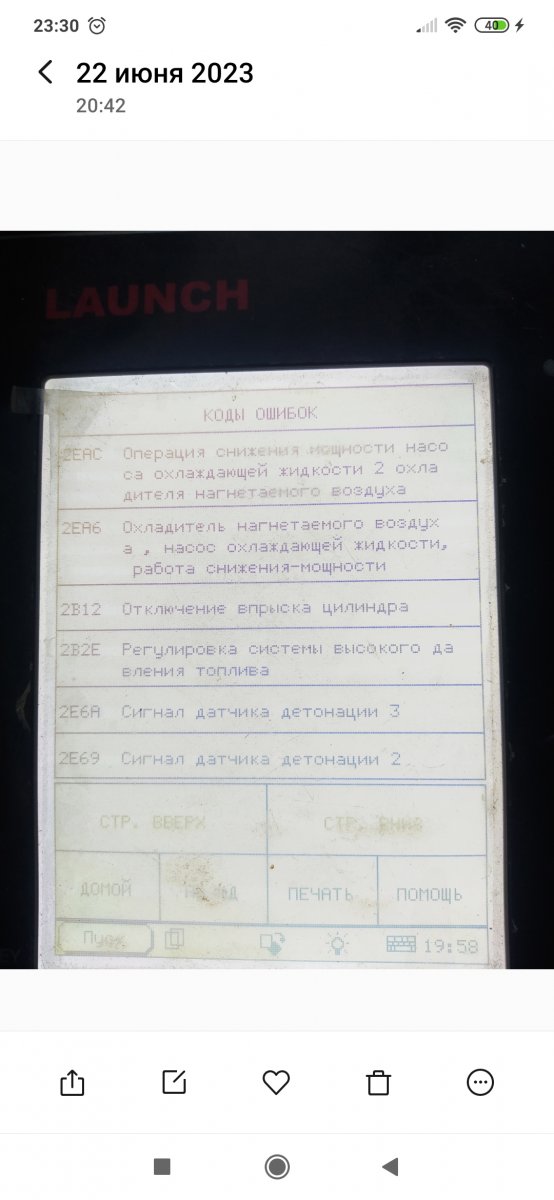 23:30
40
22 июня 2023
20:42
LAUNCH
КОДЫ ОШИБОК
2EAC Операция снижения мощности насо
са охлаждающей жидкости 2 охла
дителя нагнетаемого воздуха
2EA6 Охладитель нагнетаемого воздух
а , насос охлаждающей жидкости,
работа снижения-мощности
2B12 Отключение впрыска цилиндра
2B2E Регулировка системы высокого да
вления топлива
2E6A Сигнал датчика детонации 3
2E69 Сигнал датчика детонации 2
СТР. ВВЕРХ СТР.
ДОМОЙ ПЕЧАТЬ ПОМОЩЬ
19:58